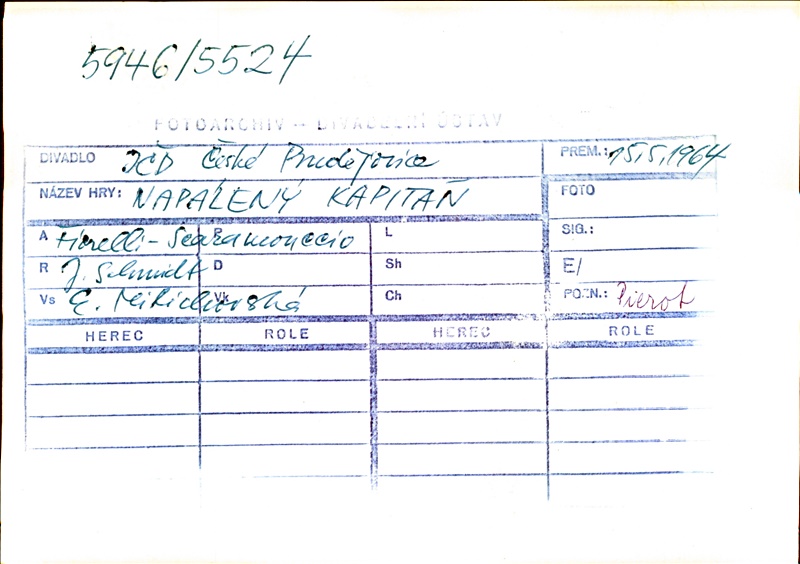 5946/5524
FOTOARCHIV – DIVADELNÍ ÚSTAV
DIVADLO JČD České Budějovice PREM.: 15.5.1964
NÁZEV HRY: NAPÁLENÝ KAPITÁN FOTO
A Fiorelli-Scaramouccio P L SIG.:
R J. Schmidt D Sh E/
Vs E. Vk Ch POZN.: Pierot
HEREC ROLE HEREC ROLE